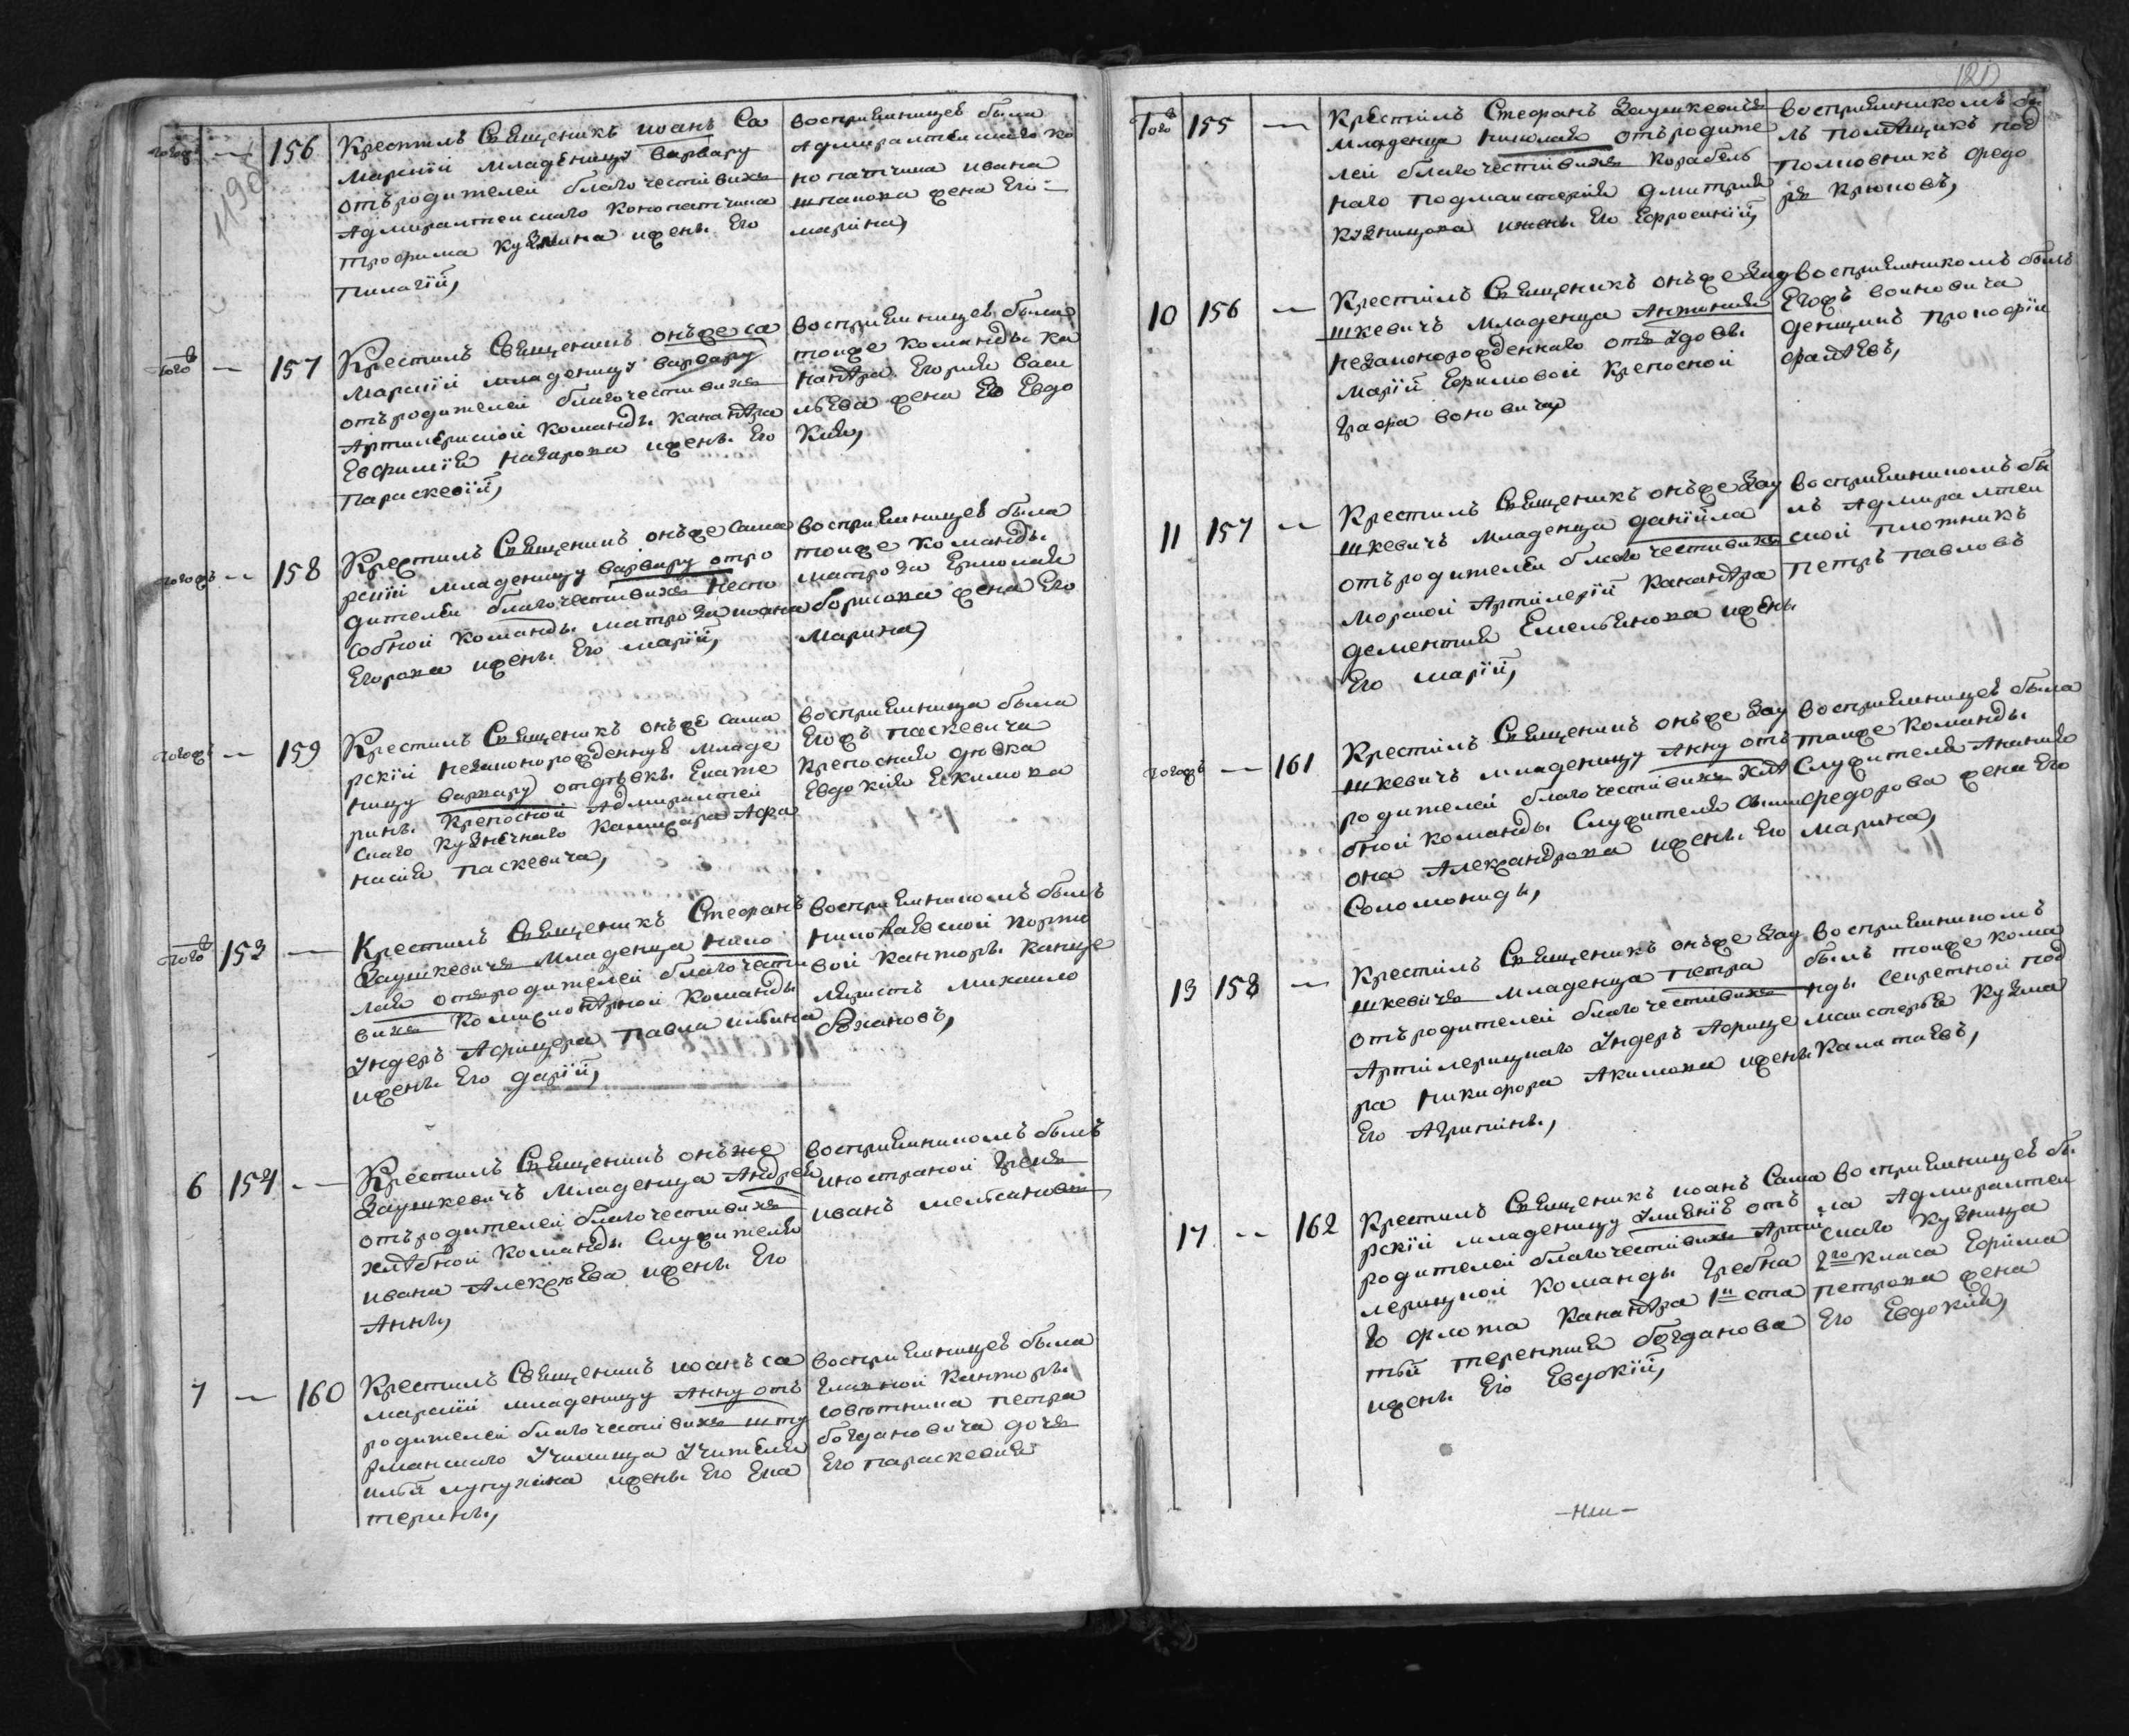 тогожъ — 156
Крестилъ Священикъ иоанъ Са
марскїй младеницу варвару
отъродителей благочестивихъ
Адмиралтеискаго конопатчика
трофима кузмина ижены Его
пилагїи,
восприемницею была
Адмиралтеискаго ко
нопатчика ивана
жена Его
марина,
того ж — 157
Крестилъ Священикъ онъже са
марскїй младеницу варвару
отъродителей благочестивихъ
Артилерискои команды канантра
Евфимїя назарова ижены Его
параскевїи,
восприемницею была
тоиже команды ка
нантра Егория васи
льева жена Его Евдо
кия,
тогожъ — 158
Крестилъ Священикъ онъже сама
рский младеницу варвару отро
дителей благочестивихъ
команды матроза иоана
Егорова ижены Его марїи,
восприемницею была
тоиже команды
матроза Ермолая
борисова жена Его
марина,
тогожъ — 159
Крестилъ Священикъ онъже сама
рскїй незаконорожденную младе
ницу варвару отдѣвки Екате
рины крепостной Адмиралтей
скаго кузнечнаго камисара Афа
насия паскевича,
восприемница была
Егожъ паскевича
крепосная дѣвка
Евдокия Екимова
того ж 153 —
Крестилъ Священикъ Стефанъ
Заушкевичъ младенца нико
лая отъродителей благочести
вихъ команды
Ундеръ Афицера павла ильина
ижены Его дарїи,
восприемникомъ былъ
николаевской порто
вой канторы канце
ляристъ михаило
6 154 —
Крестилъ Священикъ онъже
Заушкевичъ младенца Андрея
отъродителей благочестивихъ
хлѣбной команды служителя
ивана Алексѣева ижены Его
Анны,
восприемникомъ былъ
иностраной грекъ
иванъ
7 — 160
Крестилъ Священикъ иоанъ са
марскїй младеницу Анну отъ
родителей благочестивихъ шту
рманскаго училища учителя
ильи лупухина ижены Его Ека
терины,
восприемницею была
главной канторы
совѣтника петра
богдановича дочъ
Его параскевия
того ж 155 —
Крестилъ Стефанъ Заушкевичъ
младенца николая отъродите
лей благочестивихъ корабель
наго подмайстерия дмитрия
кузницова ижены Его Ефросинїи,
восприемникомъ бы
лъ помѣщикъ под
полковникъ федо
ръ крюковъ,
10 156 —
Крестилъ Священикъ онъже Зау
шкевичъ младенца Антония
незаконорожденнаго отъ удовы
марїи Ефимовой крепосной
графа воиновича,
восприемникомъ былъ
Егожъ воиновича
денщикъ прокофiи
11 157 —
Крестилъ Священикъ онъже Зау
шкевичъ младенца данїила
отъродителей благочестивихъ
морской Артилерїи канантра
дементия Емельянова ижены
Его марїи,
восприемникомъ бы
лъ Адмиралтеи
ской плотникъ
петръ павловъ
тогожъ — 161
Крестилъ Священикъ онъже Зау
шкевичъ младеницу Анну отъ
родителей благочестивихъ хлѣ
бной команды служителя
она Александрова ижены Его
Соломониды,
восприемницею была
тоиже команды
служителя Анания
федорова жена Его
марина,
13 158 —
Крестилъ Священикъ онъже Зау
шкевичъ младенца петра
отъродителей благочестивихъ
Артилерицкаго Ундеръ Афице
ра никифора Акимова ижены
Его Агрипины,
восприемникомъ
былъ тоиже кома
нды секретной под
маистерья кузма
калитаевъ,
17 — 162
Крестилъ Священикъ иоанъ сама
рскїй младеницу Улиянїю отъ
родителей благочестивихъ Арти
лерицкой команды гребна
го флота канантра 1й ста
тьи терентия богданова
ижены Его Евдокїи,
восприемницею бы
ла Адмиралтеи
скаго кузнеца
2го класа Ефима
петрова жена
Его Евдокия,